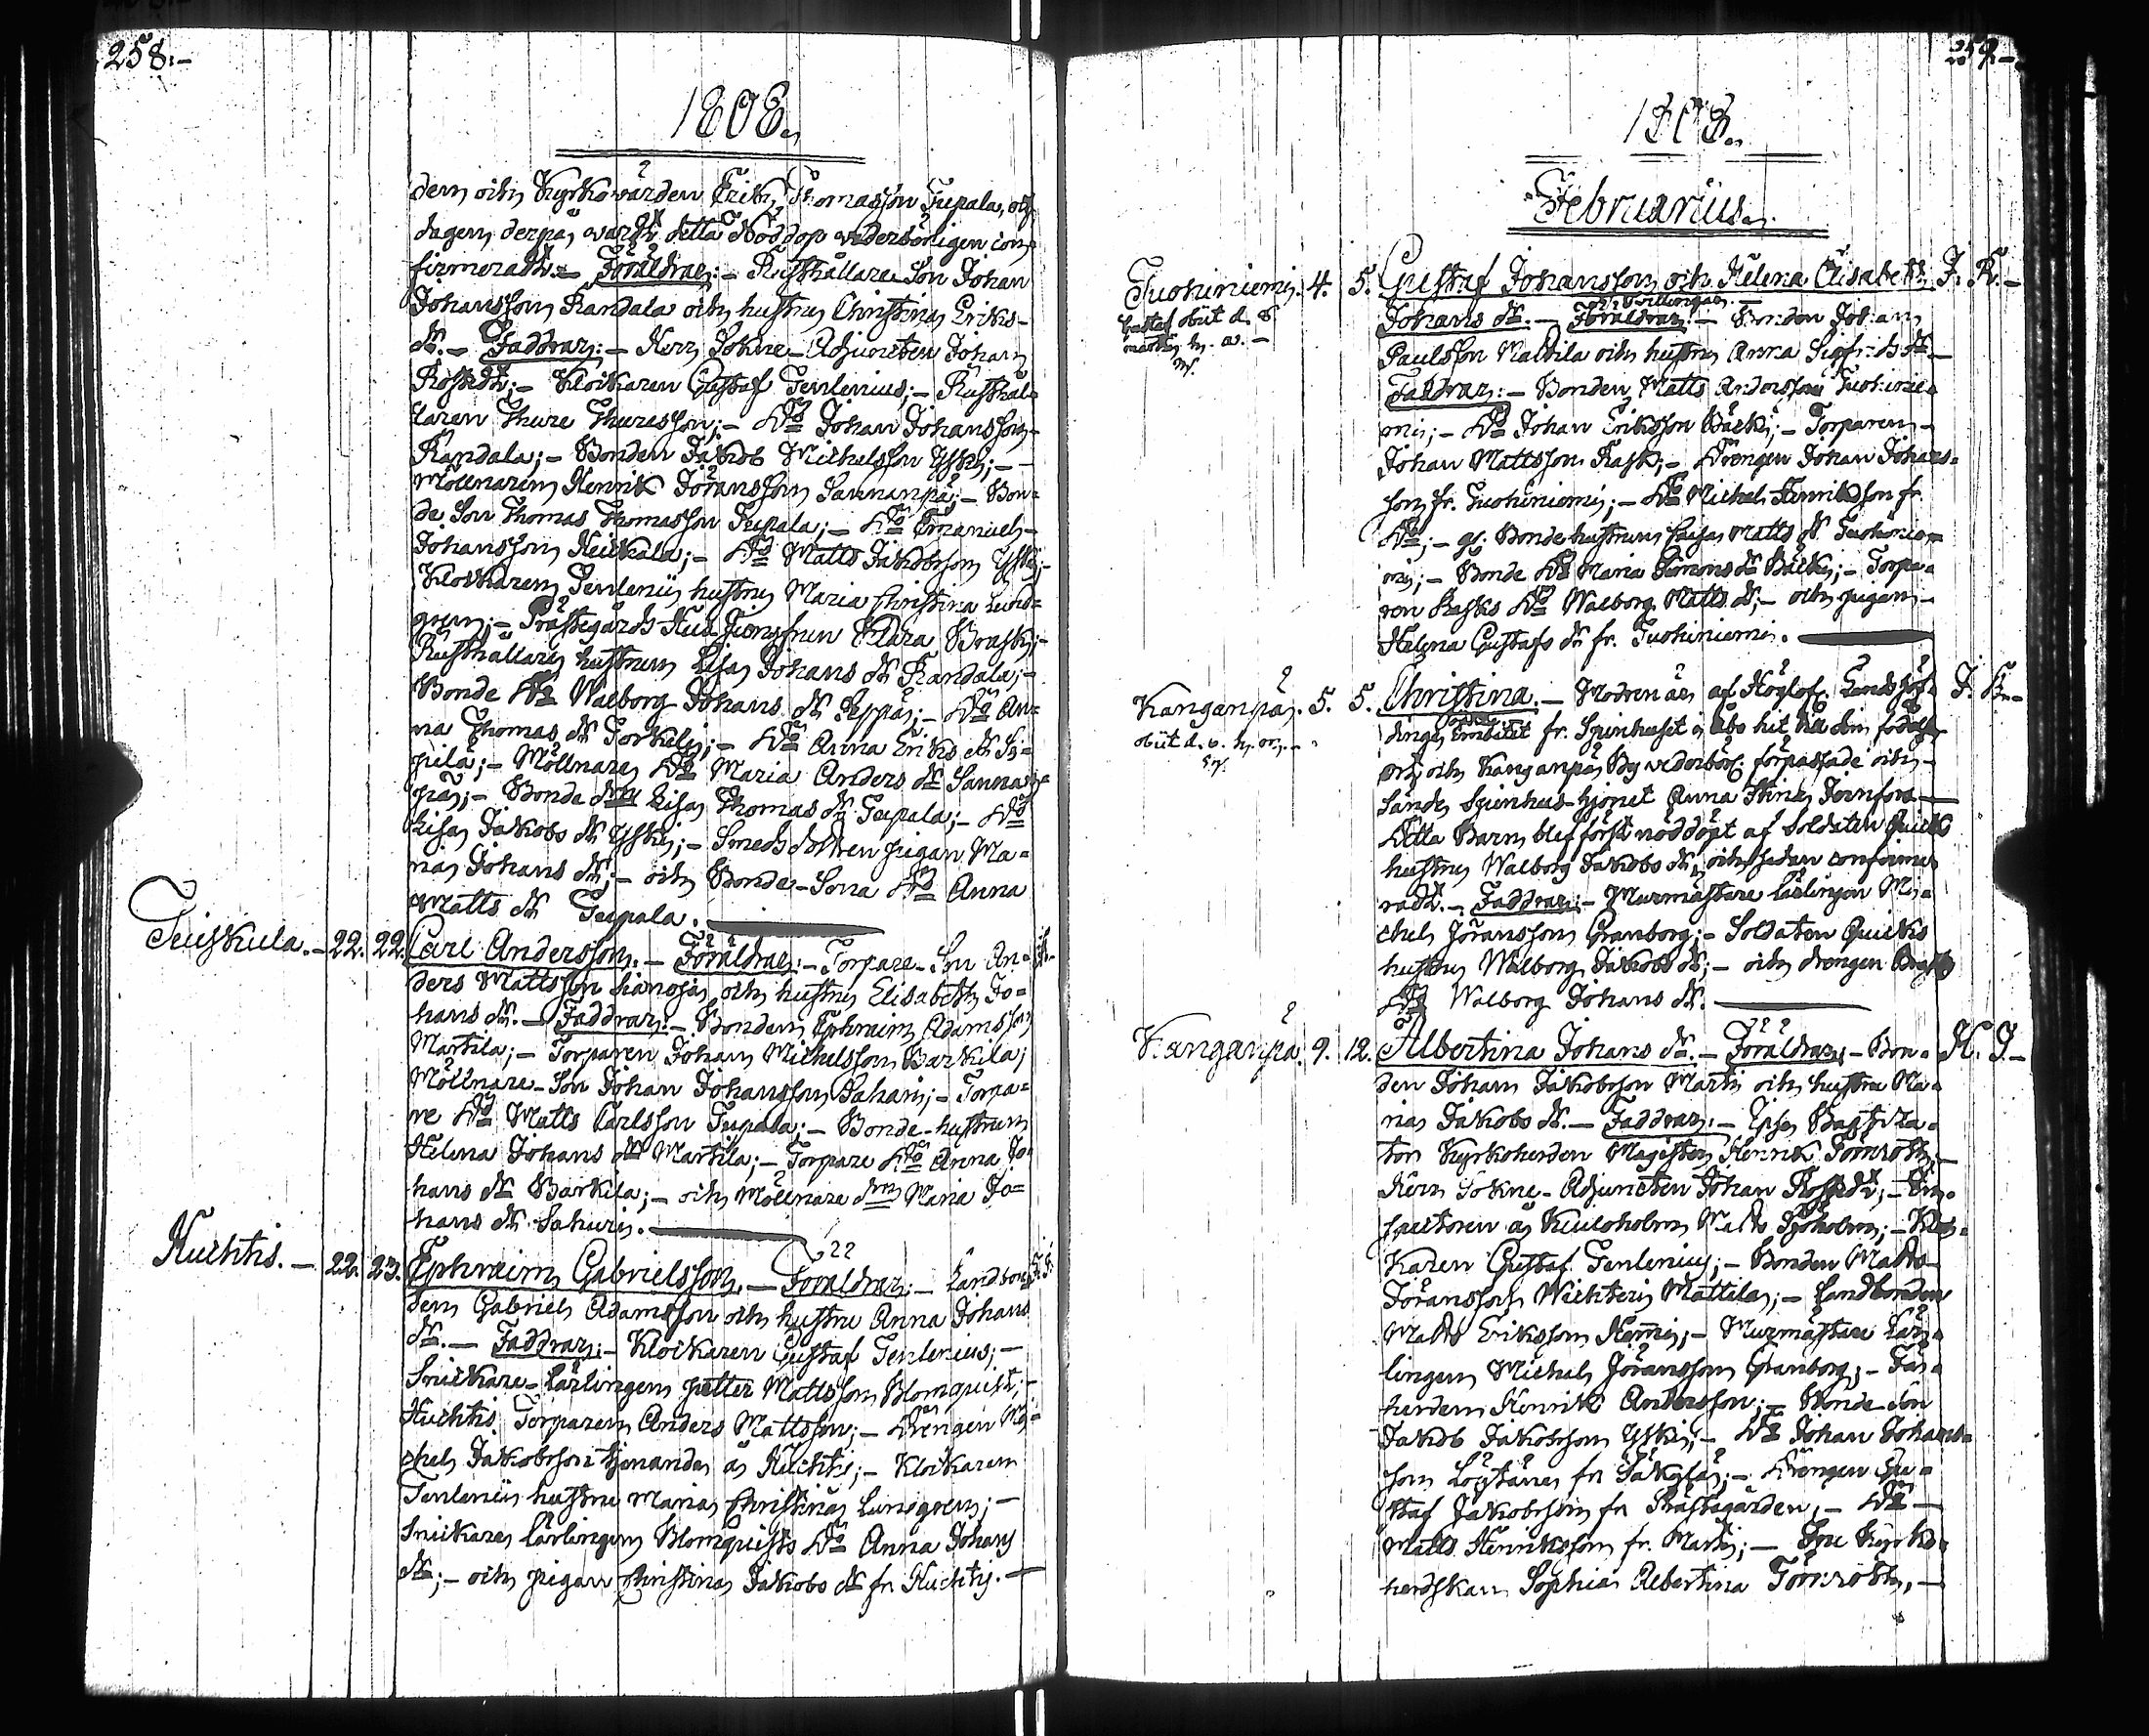 258:-
1808.
den och Kyrkowärden Erik Thomasson Tupala, och
dagen derpå wardt detta Nöddop wederbörligen con-
firmeradt. - Föräldrar: - Rusthållare Son Johan
Johansson Kandala och hustru Christina Eriks-
dr. - Faddrar: - Herr Sokne-Adjuncten Johan
Rostedt; - Klockaren Gustaf Tenlenius; - Rusthål-
laren Thure Thuresson; - Do Johan Johansson
Kandala; - Bonden Jakob Michelsson Yski; -
Möllnaren Henrik Jöransson Sannanpä; - Bon-
de Son Thomas Thomasson Tupala; - Do Emanuel
Johansson Heikkala; - Do Matts Jakobsson Yski; -
Klockaren Tenlenii hustru Maria Christina Lund-
gren; - Prästegårds Jungfrun Klara Brask; -
Rusthållare hustrun Lisa Johans dr Kandala; -
Bonde Do Walborg Johans dr Seppä; - Do An-
na Thomas dr Torkeli; - Do Anna Eriks dr
pilä; - Möllnare Do Maria Anders dr Sannan-
pä; - Bonde Lisa Thomas dr Tupala; - Do
Lisa Jakobs dr Yski; - Smeds dottren pigan Ma-
ria Johans dr; - och Bonde-Sona Do Anna
Matts dr Tupala.
Tuiskula. - 22. 22. Carl Andersson. - Föräldrar: - Torpare-Son An-
ders Mattsson och hustru Elisabeth Jo-
hans dr. - Faddrar: - Bonden Ephraim Adamsson
Martila; - Torparen Johan Michelsson Barkila;
Möllnare-Son Johan Johansson Sahari; - Torpa-
re Do Matts Carlsson Tupala; - Bonde-hustrun
Helena Johans dr Martila; - Torpare Do Anna Jo-
hans dr Barkila; - och Möllnare Maria Jo-
hans dr Sahari.
Huchtis. - 22. 23. Ephraim Gabrielsson. - Föräldrar: - Landbon-
den Gabriel Adamsson och hustru Anna Johans
dr. - Faddrar: - Klockaren Gustaf Tenlenius; -
Snickare-lärlingen Petter Mattsson Blomquist; -
Huchtis Torparen Anders Mattsson; - Drengen Mi-
chel Jakobsson tjenande å Huchtis; - Klockaren
Tenlenii hustru Maria Christina Lundgren; -
Snickare lärlingen Blomquists Do Anna Johans
dr; - och pigan Christina Jakobs dr fr. Huchtis. -
259-
1808.
Februarius.
Tuohiniemi. 4. 5. Gustaf Johansson och Helena Elisabeth J. R. -
Gustaf obiit d. 8
martii h. a. -
Johans dr. - twillingar. - Föräldrar: - Bonden Johan
Paulsson Mattila och hustru Anna Sigfrids dr -
Faddrar: - Bonden Matts Andersson Tuohinie-
mi; - Do Johan Eriksson Bäcki; - Torparen
Johan Mattsson Rask; - Drengen Johan Johans-
son fr. Tuohiniemi; - Do Michel Henriksson fr.
Do; - gl. Bonde hustrun Caisa Matts dr Tuohinie-
mi; - Bonde Do Maria Simons dr Bäcki; - Torpa-
ren Rasks Do Walborg Matts dr; - och pigan
Helena Gustafs dr fr. Tuohiniemi.
Kanganpä. 5. 5. Christina. - Modren är af Höglof. Landshöf-
obiit d. 6. h. m. -
dinge Embetet fr. Spinhuset i Åbo hit till sin födelse
ort och Kanganpä By wederbörl. förpassade och
sände Spinhus-hjonet Anna Stina Jernfors -
Detta Barn blef först nöddöpt af Soldaten Quicks
hustru Walborg Jakobs dr, och sedan confirme-
radt. - Faddrar: - Murmästare lärlingen Mi-
chel Jöransson Granborg; - Soldaten Quicks
hustru Walborg Jakobs dr; - och drengen
Do Walborg Johans dr.
Kanganpä. 9. 12. Albertina Johans dr. - Föräldrar: - Bon- H. T. -
den Johan Jakobsson Martti och hustru Ma-
ria Jakobs dr. - Faddrar: - Ipse Baptiza-
tor Kyrkoherden Magister Henrik Törnroth; -
Herr Sokne-Adjuncten Johan Rostedt; - In-
spectoren å Kiuloholm Matts Sjöholm; - Kloc-
karen Gustaf Tenlenius; - Bonden Matts
Jöransson Wichteri Mattila; - Landbonden
Matts Eriksson Nemi; - Murmästare Lär-
lingen Michel Jöransson Granborg; - Får-
herden Henrik Andersson; - Bonde-Son
Jakob Jakobsson Yski; - Do Johan Johans-
son fr Säkylä; - Drengen Gu-
staf Jakobsson fr Prästegården; - Do -
Matts Henriksson fr. Martti; - Fru Kyrko-
herdskan Sophia Albertina Törnroth, -